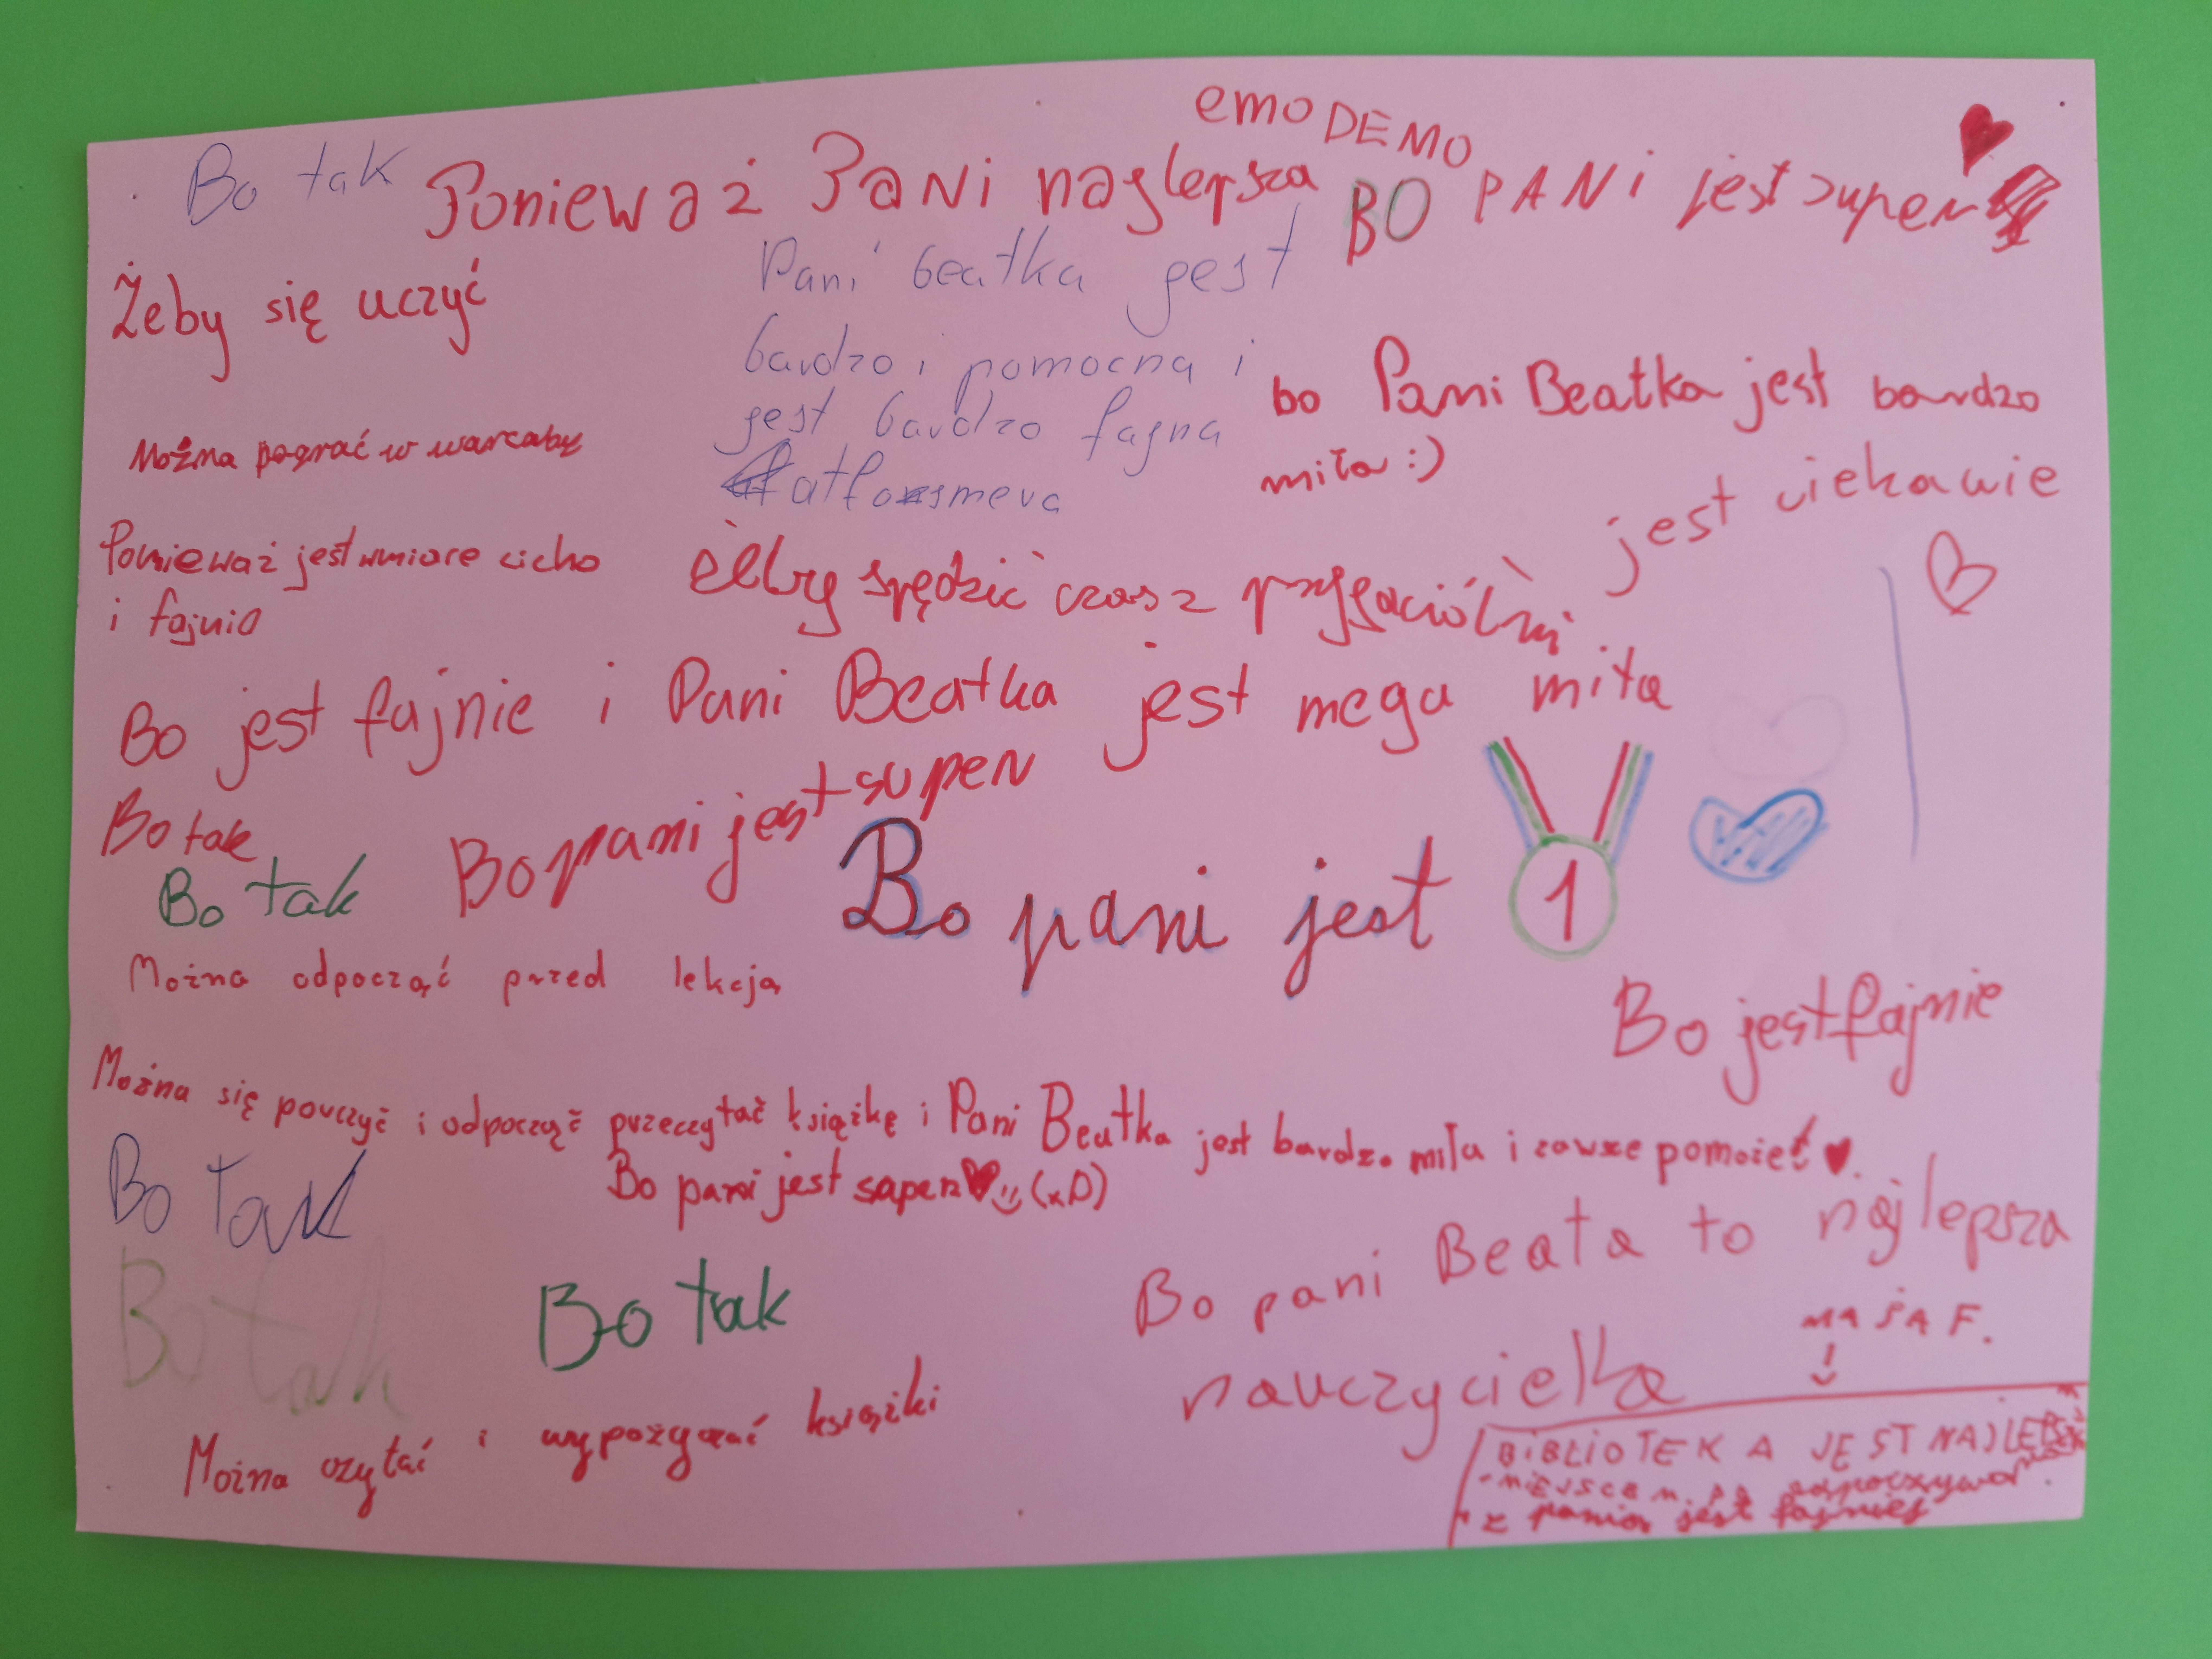 emo DEMO
Bo tak
Ponieważ Pani najlepsza
BO PANi jest super
Żeby się uczyć
Pani beatka jest
bardzo i pomocna i
jest bardzo fajna
bo Pani Beatka jest bardzo
miła :)
Można pograć w warcaby
jest ciekawie
Ponieważ jest wmiare cicho
i fajnie
spędzić czas z przyjaciółmi
Bo jest fajnie i Pani Beatka jest mega miła
Bo tak
Bo pani jest super
Bo tak
Bo pani jest 1
Można odpocząć przed lekcją
Bo jest fajnie
Można się pouczyć i odpocząć przeczytać książkę i Pani Beatka jest bardzo miła i zawsze pomoże!
Bo pani jest super (xD)
Bo tak
Bo tak
Bo tak
Bo pani Beata to najlepsza
nauczycielka
MAJA F.
Można czytać i wypożyczać książki
BiBLiOTEKA JEST
MiEJSCEM
z panią jest fajniej